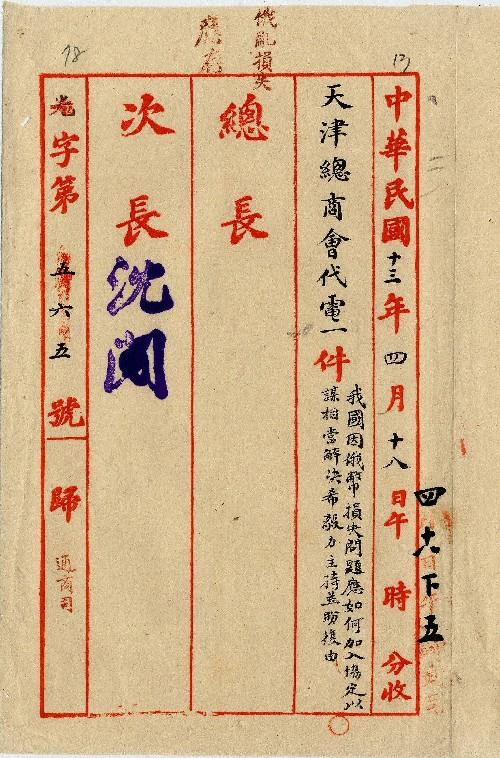 俄亂損失
中華民國十三年四月十八日午 時 分收
四六下五
天津總商會代電一件
我國因俄幣損失問題應如何加入協定以
謀相當解決希毅力主持並盼復由
總長
次長 沈
字第五六五號 歸 通商司
78